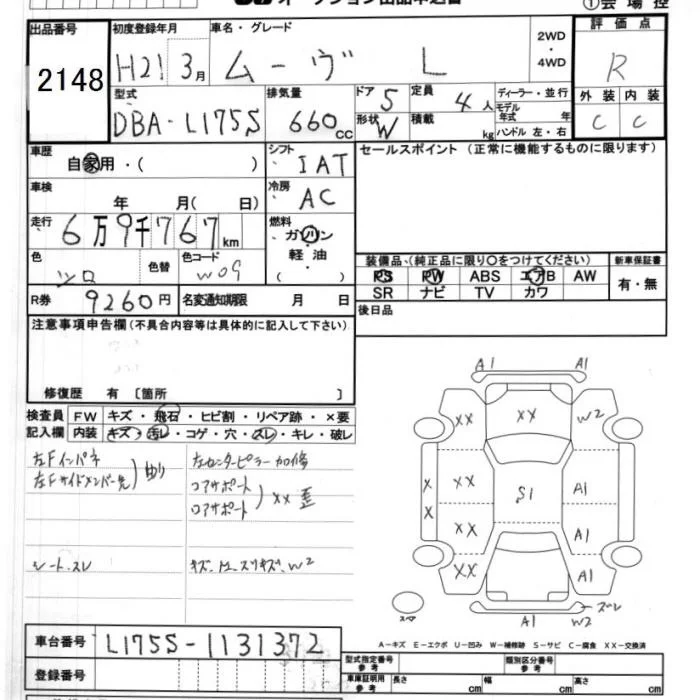 オークション出品申込書
①会場控
出品番号 2148
初度登録年月 H21 3月
車名・グレード ムーヴ L
2WD・4WD
評価点 R
型式 DBA-L175S
排気量 660 cc
ドア 5 定員 4人
形状 W 積載 kg
ディーラー・並行
モデル年式 年
ハンドル 左・右
外装 C 内装 C
車歴 自家用・( )
シフト IAT
セールスポイント(正常に機能するものに限ります)
車検 年 月( 日)
冷房 AC
走行 6万9千767km
燃料 ガソリン 軽油・( )
色 シロ 色替 色コード W09
装備品(純正品に限り○をつけてください)
新車保証書
PS PW ABS エアB AW
SR ナビ TV カワ
有・無
R券 9260円
名変通知期限 月 日
後日品
注意事項申告欄(不具合内容等は具体的に記入して下さい)
修復歴 有 〔箇所 〕
検査員記入欄
FW キズ・飛石・ヒビ割・リペア跡・×要
内装 キズ・汚レ・コゲ・穴・スレ・キレ・破レ
左Fインパネ
左Fサイドメンバー先
左センターピラー加修
コアサポート
ロアサポート
XX 歪
シートスレ
W2
A1 A1
XX XX W2
X XX S1 A1
X XX A1
XX A1
スレ
A1 W2
スペア
A-キズ E-エクボ U-凹み W-補修跡 S-サビ C-腐食 XX-交換済
車台番号 L175S-1131372
登録番号
型式指定番号 参考
類別区分番号 参考
車庫証明用 参考 長さ cm 幅 cm 高さ cm